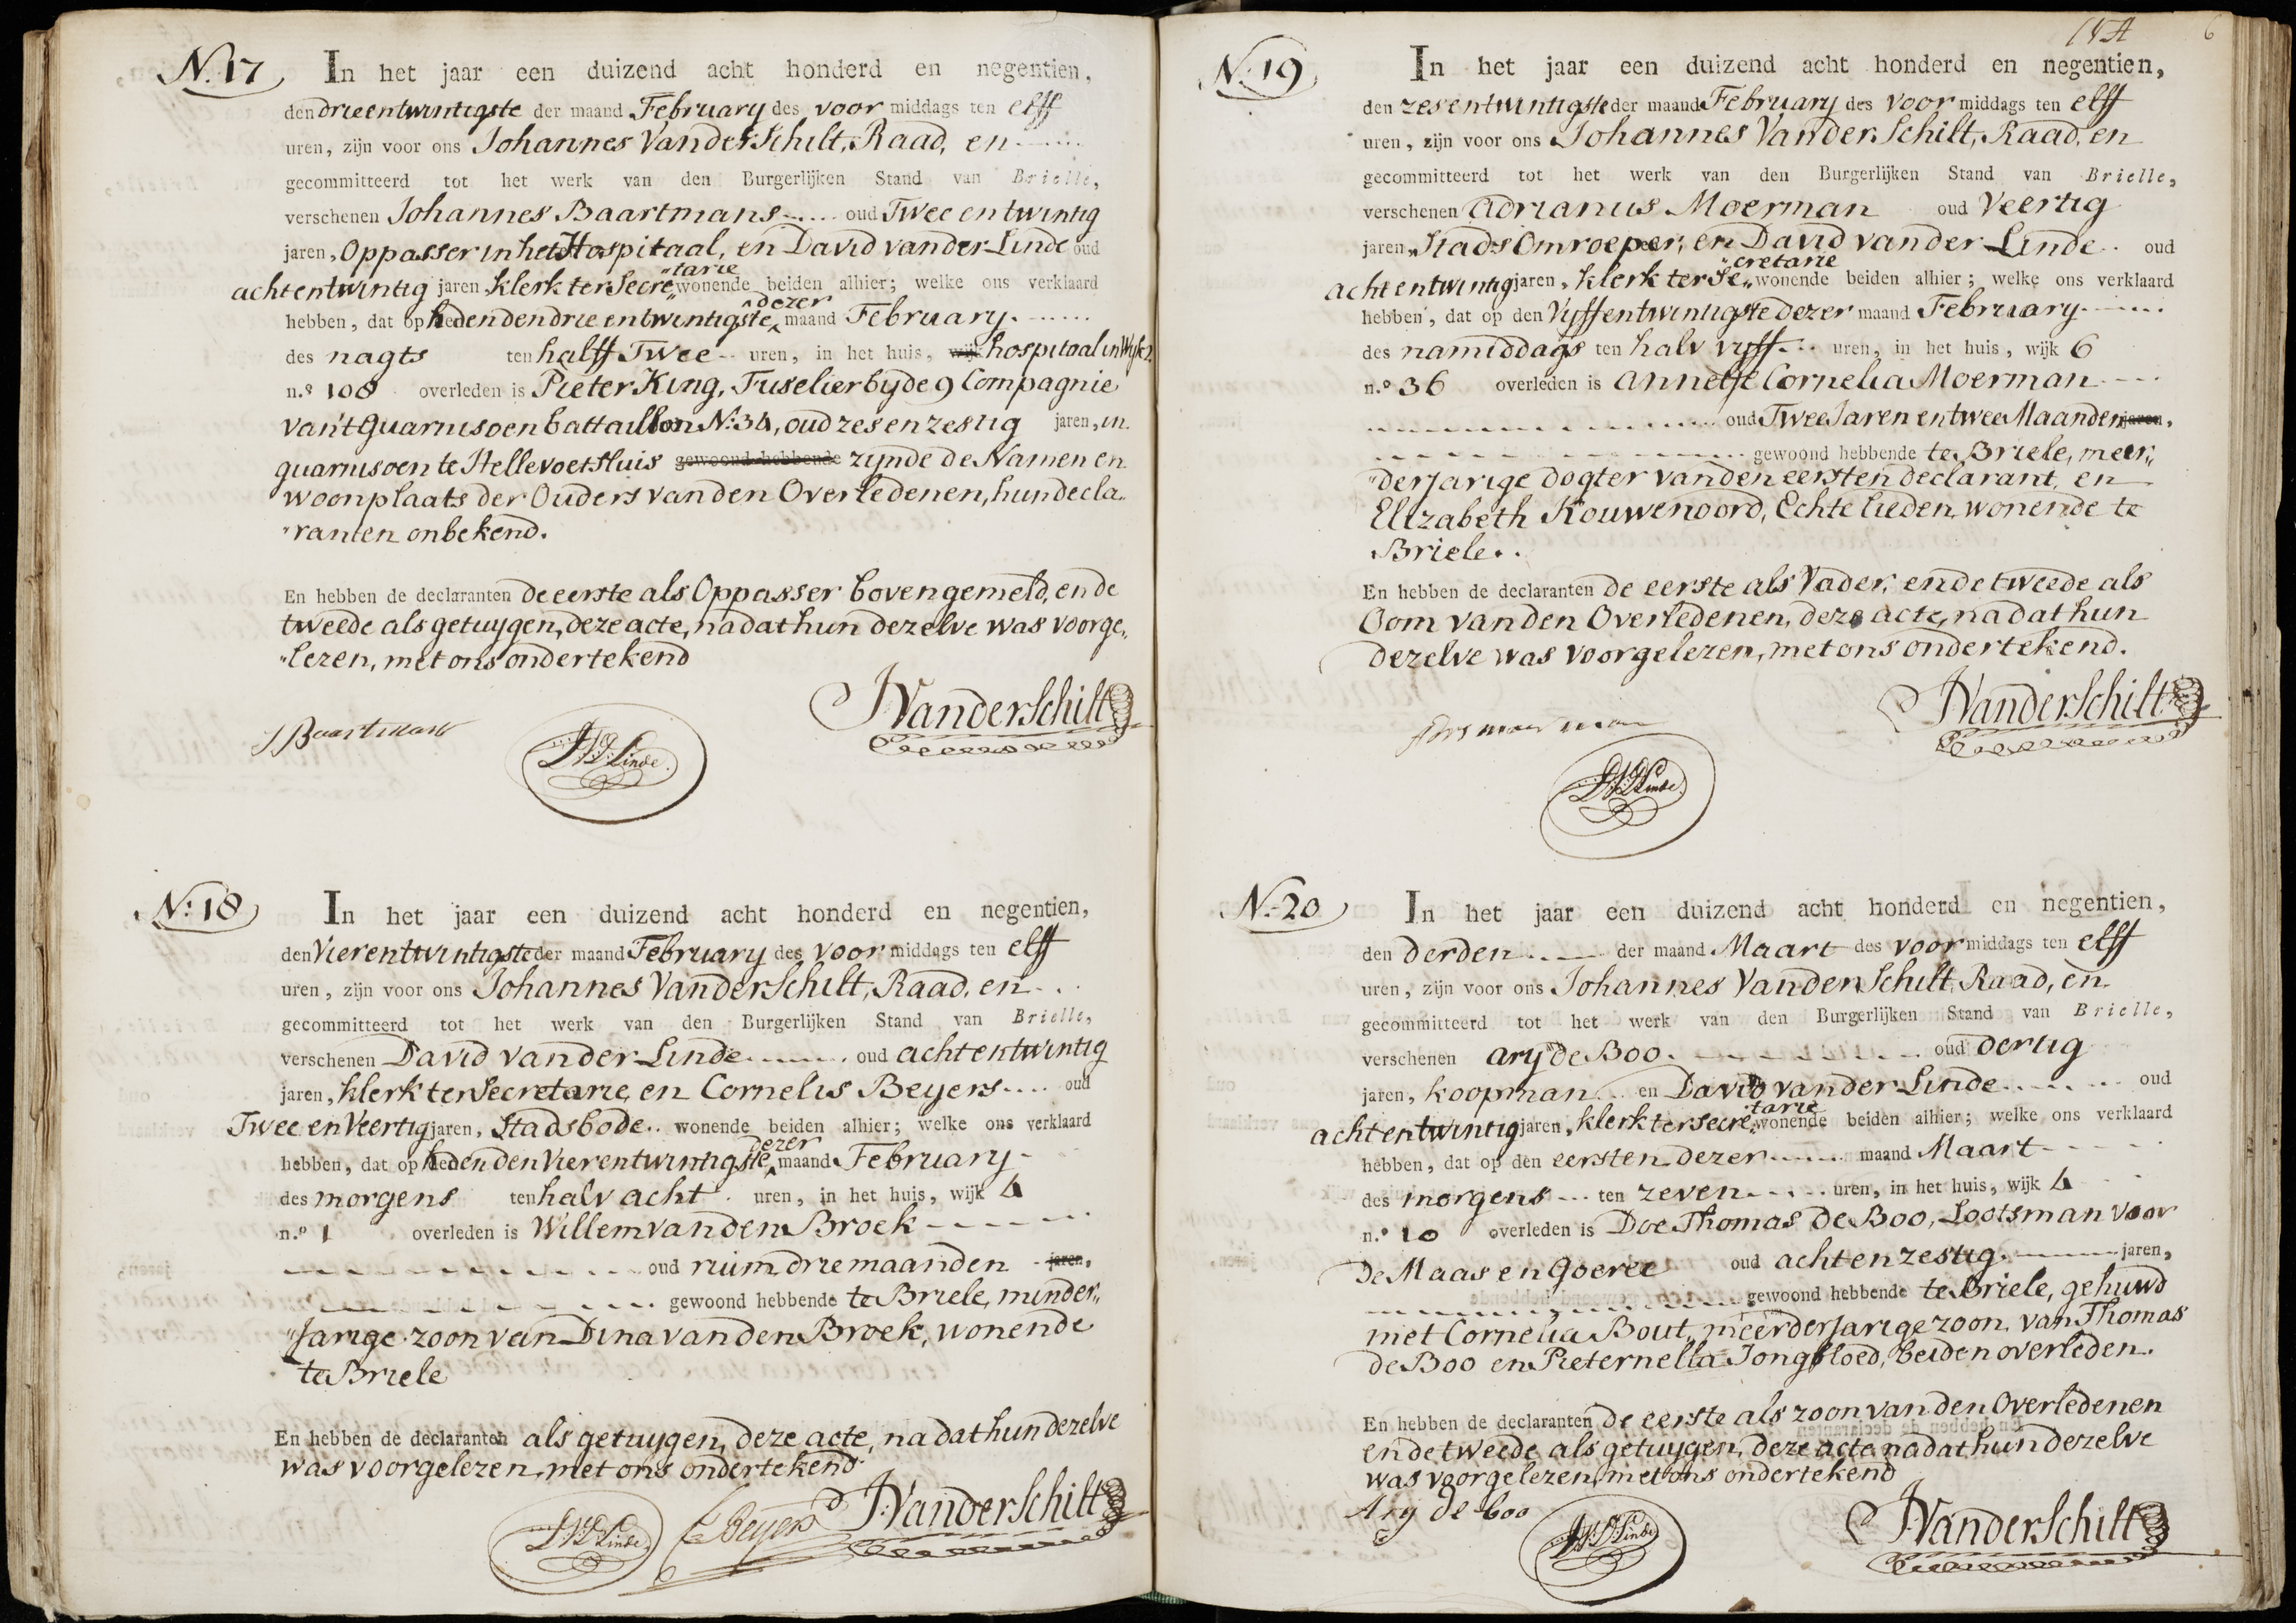 N. 17
In het jaar een duizend acht honderd en negentien,
den drieentwintigste der maand February des voor middags ten elff
uren, zijn voor ons Johannes Van der Schilt, Raad, en
gecommitteerd tot het werk van den Burgerlijken Stand van Brielle,
verschenen Johannes Baartmans oud Twee en twintig
jaren, Oppasser in het Hospitaal, en David vander Linde oud
achtentwintig jaren Klerk ter Secre„ „tarie wonende beiden alhier; welke ons verklaard
hebben, dat op heden den drie entwintigste dezer maand February
des nagts ten halff Twee uren, in het huis, wijk hospitaal in Wijk 2
n.o 108 overleden is Pieter King, Fuselier by de 9 Compagnie
van 't Guarnisoen battaillon N: 34, oud zes en zestig jaren, in
guarnisoen te Hellevoetsluis gewoond hebbende zynde de Namen en
woonplaats der Ouders van den Overledenen, hun decla„
„ranten onbekend.
En hebben de declaranten de eerste als Oppasser bovengemeld, en de
tweede als getuygen, deze acte, nadat hun dezelve was voorge„
„lezen, met ons ondertekend
JVanderSchilt
J Baartmans
DVD Linde.
N: 18
In het jaar een duizend acht honderd en negentien,
den Vierentwintigste der maand February des voor middags ten elff
uren, zijn voor ons Johannes Van der Schilt, Raad, en
gecommitteerd tot het werk van den Burgerlijken Stand van Brielle,
verschenen David van der Linde oud achtentwintig
jaren, Klerk ter Secretarie, en Cornelis Beyers oud
Twee en Veertig jaren, Stadsbode wonende beiden alhier; welke ons verklaard
hebben, dat op heden den Vierentwintigste dezer maand February
des morgens ten halv acht uren, in het huis, wijk 4
n.o 1 overleden is Willem van den Broek
oud ruim drie maanden jaren,
gewoond hebbende te Briele, minder„
„Jarige zoon van Dina van den Broek, wonende
te Briele
En hebben de declaranten als getuygen, deze acte, nadat hun dezelve
was voorgelezen, met ons ondertekend
DVD Linde. CBeyers JVanderSchilt
6
N: 19
In het jaar een duizend acht honderd en negentien,
den zesentwintigste der maand February des voor middags ten elff
uren, zijn voor ons Johannes Van der Schilt, Raad, en
gecommitteerd tot het werk van den Burgerlijken Stand van Brielle,
verschenen Adrianus Moerman oud Veertig
jaren, Stads Omroeper, en David van der Linde oud
achtentwintig jaren, Klerk ter Se„ „cretarie wonende beiden alhier; welke ons verklaard
hebben, dat op den Vyffentwintigste dezer maand February
des namiddags ten halv vyff uren, in het huis, wijk 6
n.o 36 overleden is Annetje Cornelia Moerman
oud Twee Jaren en twee Maanden jaren,
gewoond hebbende te Briele, meer„
„derjarige dogter van den eersten declarant, en
Elizabeth Kouwenoord, Echte lieden, wonende te
Briele.
En hebben de declaranten de eerste als Vader, en de tweede als
Oom van den Overledenen, deze acte, nadat hun
dezelve was voorgelezen, met ons ondertekend.
JVanderSchilt
DVD Linde.
N: 20
In het jaar een duizend acht honderd en negentien,
den derden der maand Maart des voor middags ten elff
uren, zijn voor ons Johannes Van der Schilt, Raad, en
gecommitteerd tot het werk van den Burgerlijken Stand van Brielle,
verschenen Ary de Boo oud dertig
jaren, koopman en David van der Linde oud
achtentwintig jaren, Klerk ter Secre„ tarie wonende beiden alhier; welke ons verklaard
hebben, dat op den eersten dezer maand Maart
des morgens ten zeven uren, in het huis, wijk 4
n.o 10 overleden is Doe Thomas de Boo, Lootsman voor
de Maas en Goeree oud achtenzestig jaren,
gewoond hebbende te Briele, gehuwd
met Cornelia Bout, meerderjarige zoon van Thomas
de Boo en Pieternella Jongbloed, beiden overleden.
En hebben de declaranten de eerste als zoon van den Overledenen
en de tweede als getuygen, deze acte nadat hun dezelve
was voorgelezen, met ons ondertekend
Ary de boo
DVD Linde
JVanderSchilt